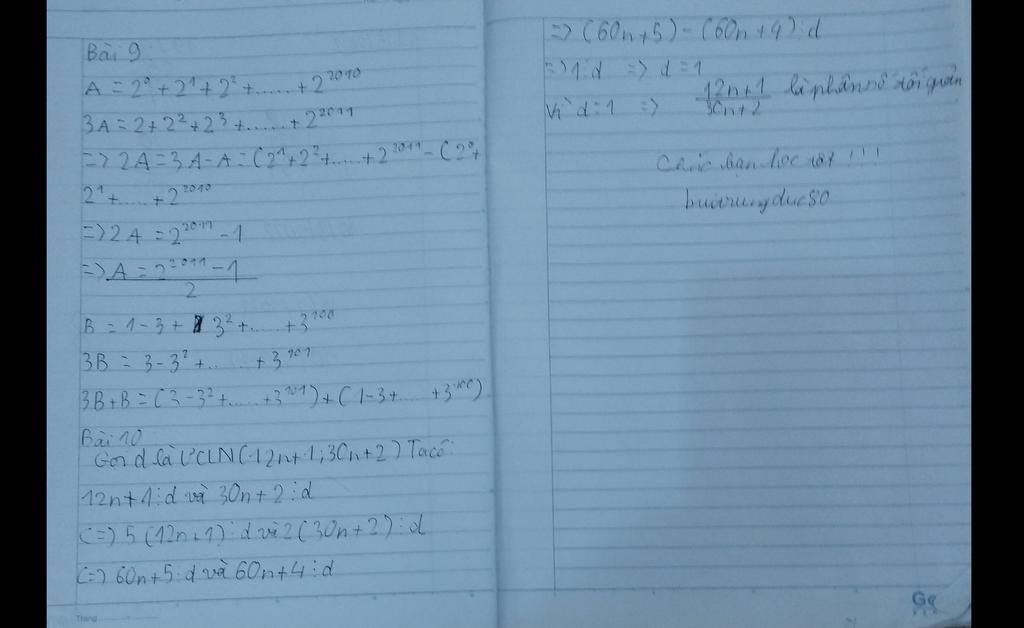 Bài 9:
A = 2⁰ + 2¹ + 2² + ...... + 2²⁰¹⁰
3A = 2 + 2² + 2³ + ...... + 2²⁰¹¹
=> 2A = 3A - A = (2¹ + 2² + ..... + 2²⁰¹¹ - (2⁰ +
2¹ + ..... + 2²⁰¹⁰
=> 2A = 2²⁰¹¹ - 1
=> A = 2²⁰¹¹ - 1
2
B = 1 - 3 + 3² + ..... + 3¹⁰⁰
3B = 3 - 3² + ...... + 3¹⁰¹
3B + B = (3 - 3² + ..... + 3¹⁰¹) + (1 - 3 + ..... + 3¹⁰⁰)
Bài 10
Gọi d là ƯCLN(12n + 1; 30n + 2) Ta có:
12n + 1 ⋮ d và 30n + 2 ⋮ d
(=) 5(12n + 1) ⋮ d và 2(30n + 2) ⋮ d
(=) 60n + 5 ⋮ d và 60n + 4 ⋮ d
=> (60n + 5) - (60n + 4) ⋮ d
=> 1 ⋮ d => d = 1
Vì d = 1 => 12n + 1 / 30n + 2 là phân số tối giản
Chúc bạn học tốt !!!